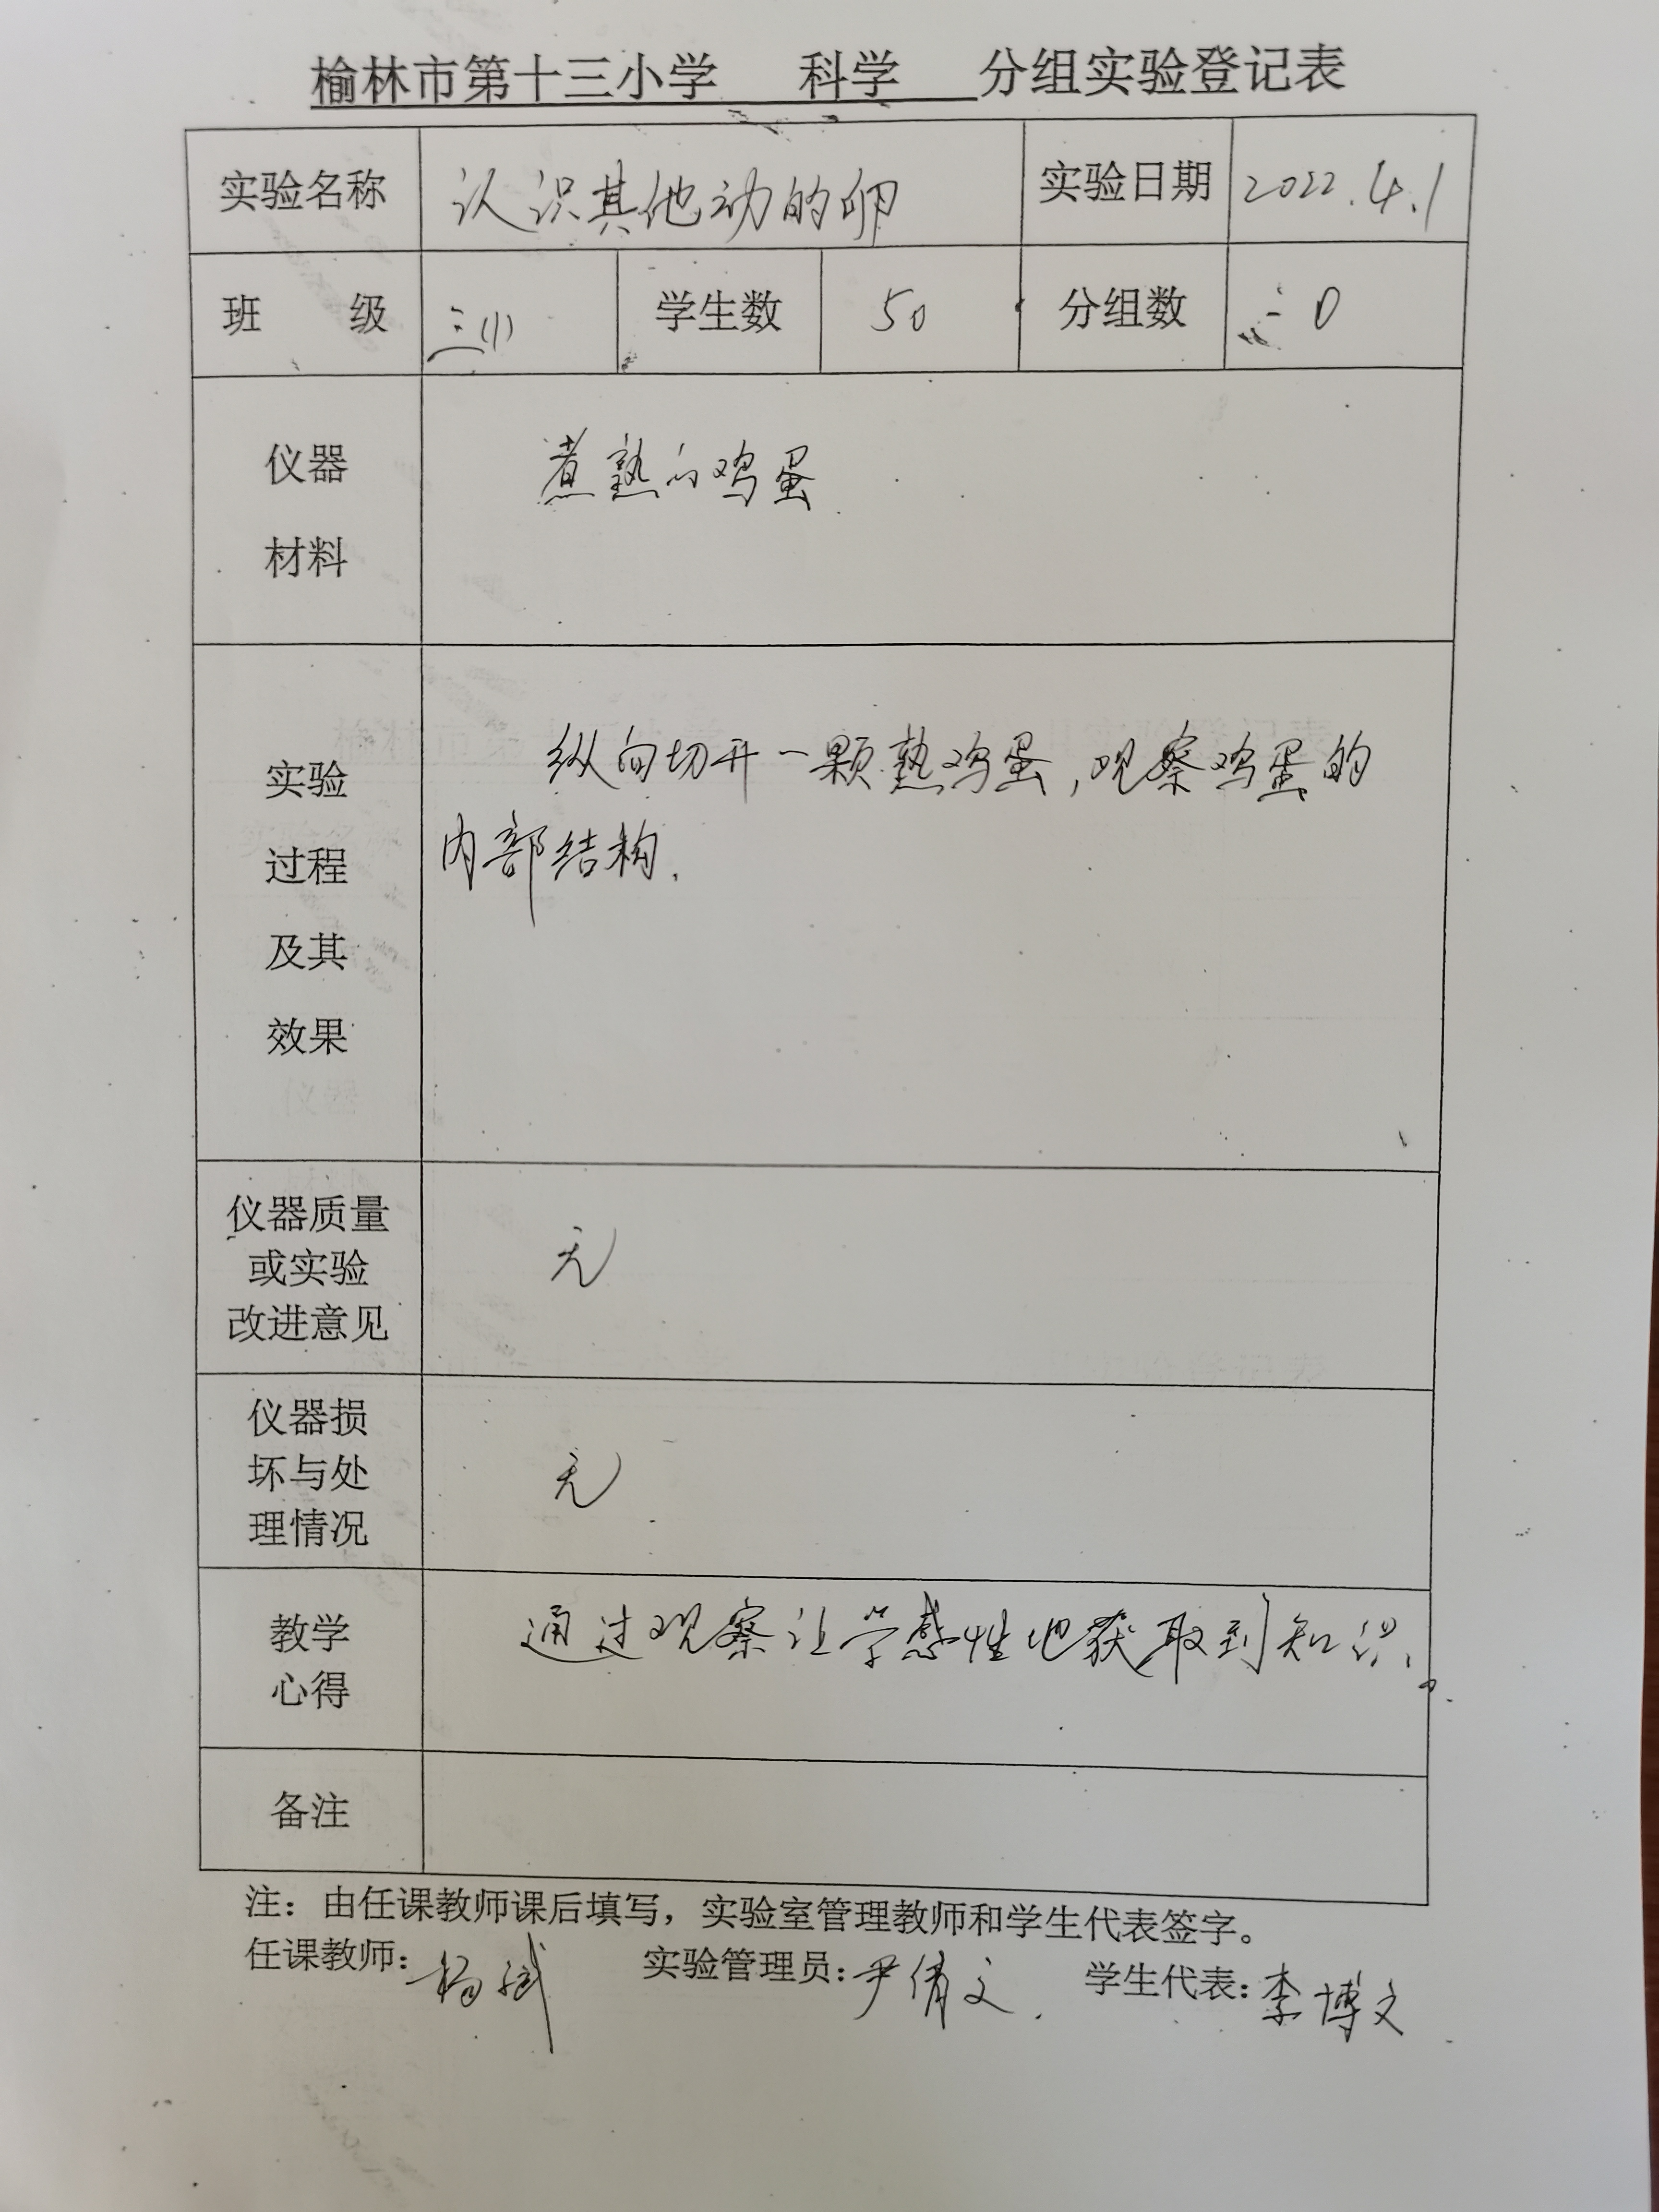 榆林市第十三小学 科学 分组实验登记表
实验名称 认识其他动的卵 实验日期 2022.4.1
班 级 三(1) 学生数 50 分组数
仪器
材料
煮熟的鸡蛋
实验
过程
及其
效果
纵向切开一颗熟鸡蛋,观察鸡蛋的
内部结构.
仪器质量
或实验
改进意见
无
仪器损
坏与处
理情况
无
教学
心得
通过观察让学感性地获取到知识。
备注
注:由任课教师课后填写,实验室管理教师和学生代表签字。
任课教师:杨斌 实验管理员:尹倩文. 学生代表:李博文